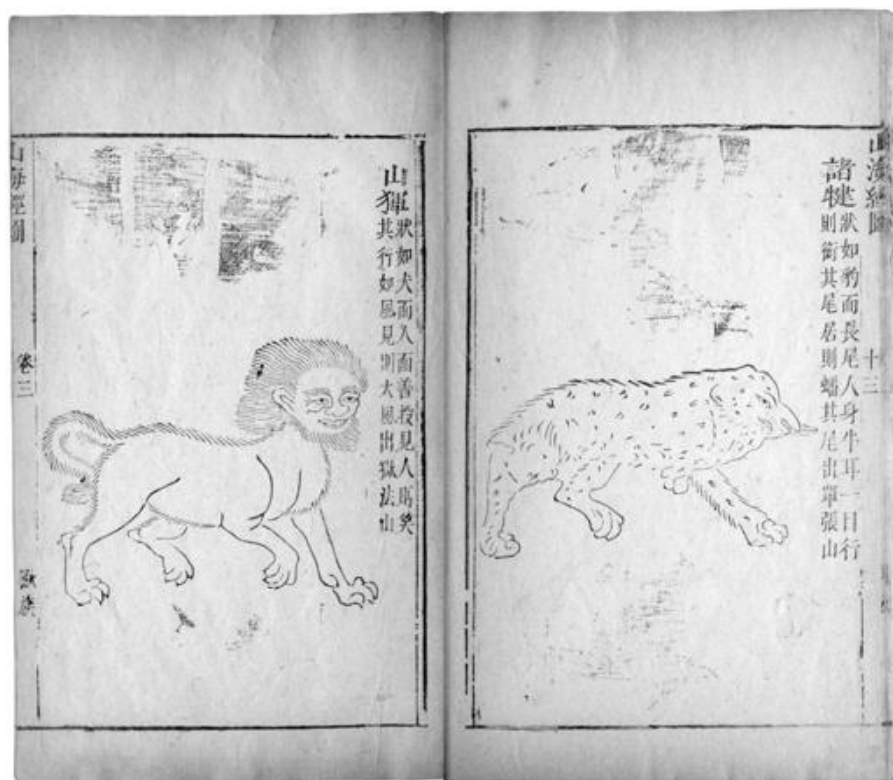 山海經圖
十三
諸犍
狀如豹而長尾人身牛耳一目行
則銜其尾居則蟠其尾出單張山
山𤟤
狀如犬面人面善投見人
其行如風見則大風出獄法山
山海經圖
卷三
獸族